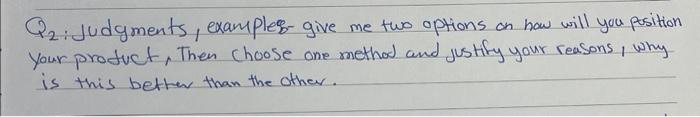 Q2: Judgments, examples- give me two options on how will you position
your product, Then choose one method and justify your reasons, why
is this better than the other.